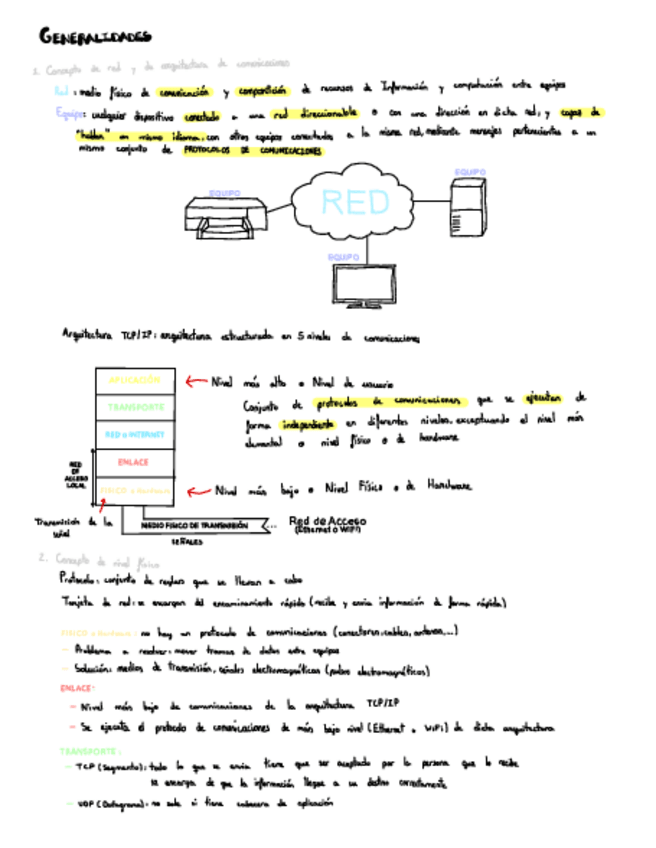 GENERALIDADES
1. Concepto de red y de arquitectura de comunicaciones
Red: medio físico de comunicación y compartición de recursos de Información y computación entre equipos
Equipo: cualquier dispositivo conectado a una red direccionable o con una dirección en dicha red, y capaz de
"hablar" un mismo idioma, con otros equipos conectados a la misma red, mediante mensajes pertenecientes a un
mismo conjunto de PROTOCOLOS DE COMUNICACIONES
EQUIPO
EQUIPO
RED
EQUIPO
Arquitectura TCP/IP: arquitectura estructurada en 5 niveles de comunicaciones
APLICACIÓN
Nivel más alto o Nivel de usuario
Conjunto de protocolos de comunicaciones que se ejecutan de
TRANSPORTE
forma independiente en diferentes niveles, exceptuando el nivel más
RED o INTERNET
elemental o nivel físico o de hardware
ENLACE
RED DE ACCESO LOCAL
FISICO o hardware
Nivel más bajo o Nivel Físico o de Hardware
Transmisión de la señal
MEDIO FISICO DE TRANSMISIÓN ...
Red de Acceso
(Ethernet o WiFi)
SEÑALES
2. Concepto de nivel físico
Protocolo: conjunto de reglas que se llevan a cabo
Tarjeta de red: se encargan del encaminamiento rápido (recibe y envia información de forma rápida)
FISICO o hardware: no hay un protocolo de comunicaciones (conectores, cables, antenas,...)
- Problema a resolver: mover tramas de datos entre equipos
- Solución: medios de transmisión, señales electromagnéticas (pulsos electromagnéticos)
ENLACE:
- Nivel más bajo de comunicaciones de la arquitectura TCP/IP
- Se ejecuta el protocolo de comunicaciones de más bajo nivel (Ethernet o WiFi) de dicha arquitectura
TRANSPORTE:
- TCP (Segmento): todo lo que se envia tiene que ser aceptado por la persona que lo recibe
se encarga de que la información llegue a su destino correctamente
- UDP (Datagrama): no sabe si tiene cabecera de aplicación